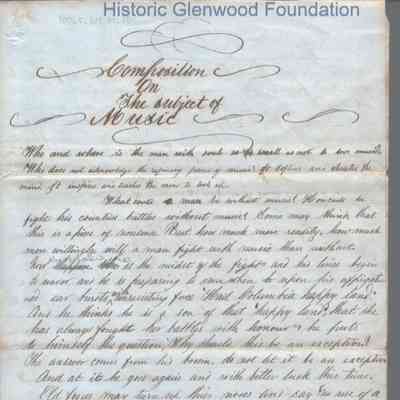 Historic Glenwood Foundation
Composition
On
The subject of
Music
Who and where is the man with soul so small as not to love music?
Who does not acknowledge the refining power of music? It softens and elevates the
mind. It inspires and excites the
What could a man be without music? How could he
fight his countries battles without music? Some may think that
this is a piece of nonsense. But how much more readily, how much
more willingly will a man fight with music than without.
is in the midst of the fight and his lines begin
to waver and he is preparing to run, when lo upon his
ear bursts, "Hail Columbia happy land"
And he thinks he is a son of that "happy land," that she
has always fought her battles with honour & he puts
to himself the question, Why should this be an exception?
The answer comes from his bosom, do not let it be an exception
And at it he goes again and with better luck this time.
Old may turn up their noses and say the use of a